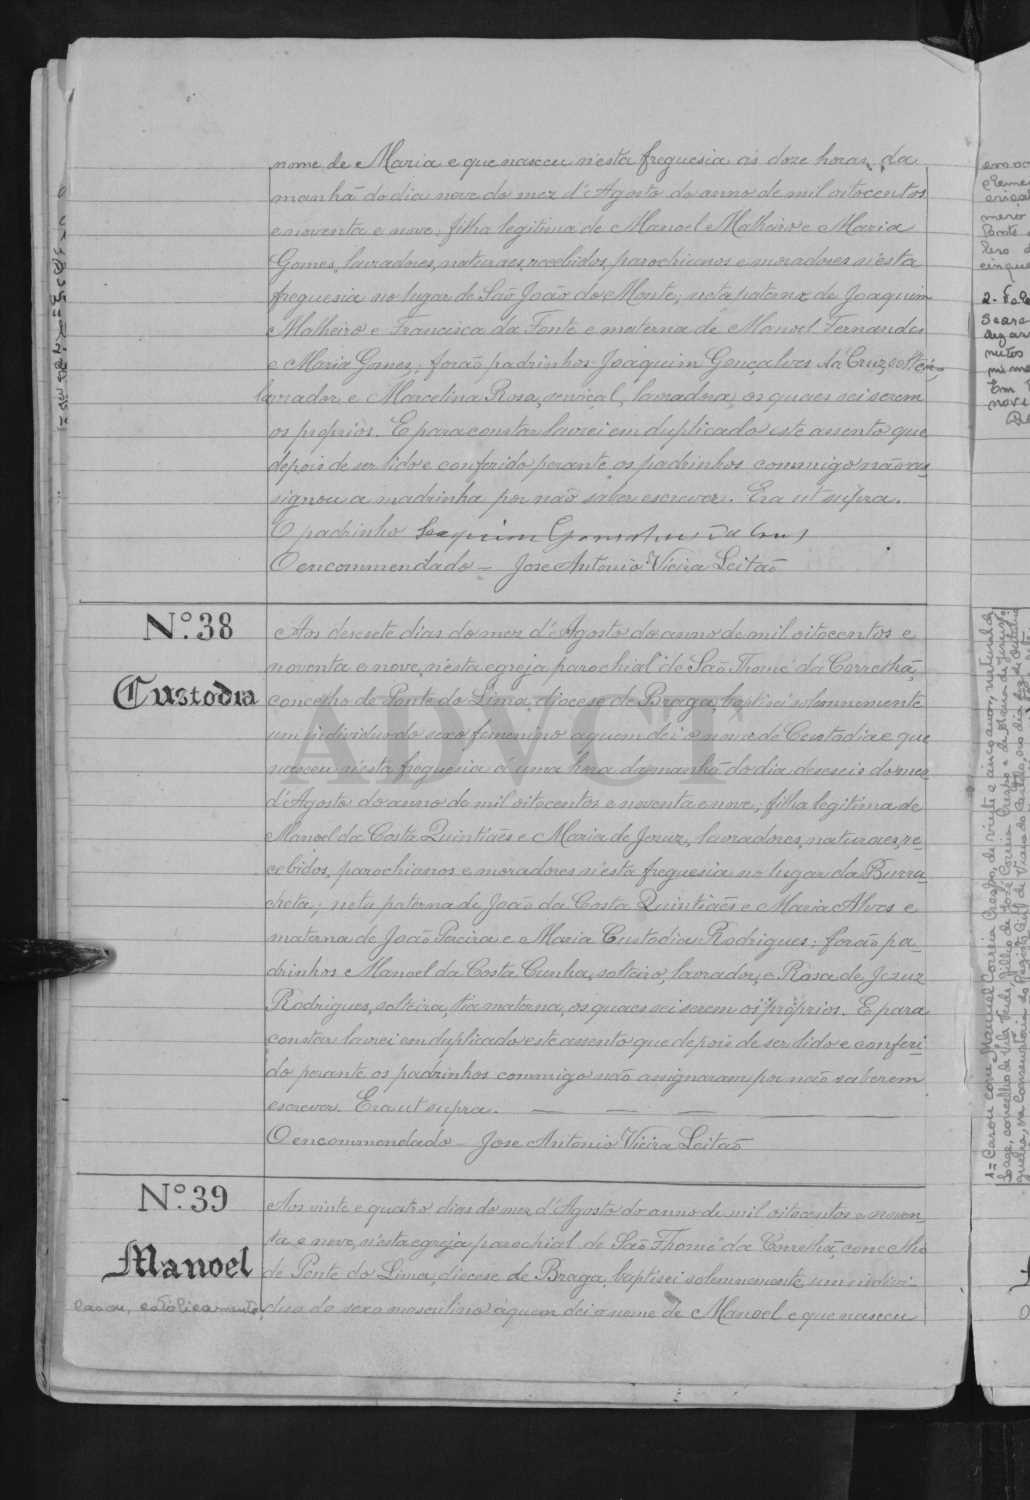 nome de Maria e que nasceu n'esta freguesia ás doze horas da
manhã do dia nove do mez d'Agosto do anno de mil oitocentos
e noventa e nove, filha legitima de Manoel Malheiro e Maria
Gomes, lavradores, naturaes, recebidos, parochianos e moradores n'esta
freguesia no lugar de São João do Monte; neta paterna de Joaquim
Malheiro e Francisca da Fonte e materna de Manoel Fernandes
e Maria Gomes; forão padrinhos Joaquim Gonçalves da Cruz, solteiro,
lavrador, e Marcelina Rosa, serviçal, lavradora, os quaes sei serem
os proprios. E para constar lavrei em duplicado este assento que
depois de ser lido e conferido perante os padrinhos commigo não as
signou a madrinha por não saber escrever. Era ut supra.
O padrinho Joaquim Gonsalves da Crus
O encommendado – Jose Antonio Vieira Leitão
Nº. 38
Custodia
Aos desesete dias do mez d'Agosto do anno de mil oitocentos e
noventa e nove, n'esta egreja parochial de São Thomé da Correlhã,
concelho de Ponte do Lima, diocese de Braga, baptisei solemnemente
um individuo do sexo femenino a quem dei o nome de Custodia e que
nasceu n'esta freguesia á uma hora da manhã do dia deseseis do mez
d'Agosto do anno de mil oitocentos e noventa e nove, filha legitima de
Manoel da Costa Quintiães e Maria de Jezuz, lavradores, naturaes, re-
cebidos, parochianos e moradores n'esta freguesia no lugar da Burra-
cheta; neta paterna de João da Costa Quintiães e Maria Alves e
materna de João Pereira e Maria Custodia Rodrigues; forão pa-
drinhos Manoel da Costa Cunha, solteiro, lavrador, e Rosa de Jezuz
Rodrigues, solteira, tia materna, os quaes sei serem os proprios. E para
constar lavrei em duplicado este assento que depois de ser lido e conferi-
do perante os padrinhos commigo não assignaram por não saberem
escrever. Era ut supra.
O encommendado – Jose Antonio Vieira Leitão
Nº. 39
Manoel
casou, catolicamente,
Aos vinte e quatro dias do mez d'Agosto do anno de mil oitocentos e noven-
ta e nove, n'esta egreja parochial de São Thomé da Correlhã, concelho
de Ponte do Lima, diocese de Braga, baptisei solemnemente um indivi-
duo do sexo masculino a quem dei o nome de Manoel e que nasceu
ADVCT
1 = Casou com Manuel Correia Crespo, de vinte e cinco anos, natural de